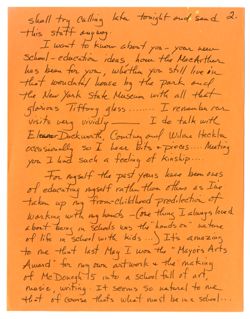 2.
shall try calling late tonight and send
this stuff anyway.
I want to know about you - your new
school - education ideas, how the MacArthur
has been for you, whether you still live in
that wonderful house by the Park and
the New York State Museum with all that
glorious Tiffany glass....... I remember our
visits very vividly I do talk with
Eleanor Duckworth, Courtney and Wilma Hecklin
occasionally so I have bits + pieces.... Meeting
you I had such a feeling of kinship....
For myself the past years have been ones
of educating myself rather than others as I've
taken up my from-childhood predilection of
working with my hands - (one thing I always loved
about being in schools was the "hands on" nature
of life in school with kids...) It's amazing
to me that last May I won the "Mayor's Arts
Award" for my own artwork + the making
of McDonogh 15 into a school full of art,
music, writing. It seems so natural to me
that of course that's what must be in a school...